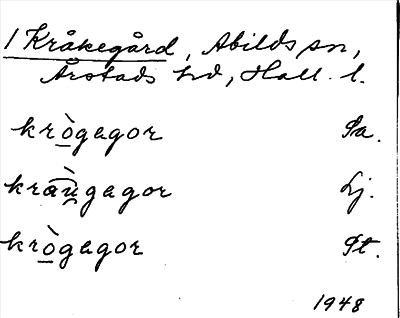 1 Kråkegård, Abilds sn,
Årstads hd, Hall. l.
krò̲gagor Pa.
kraùgagor Lj.
krò̲gagor St.
1948